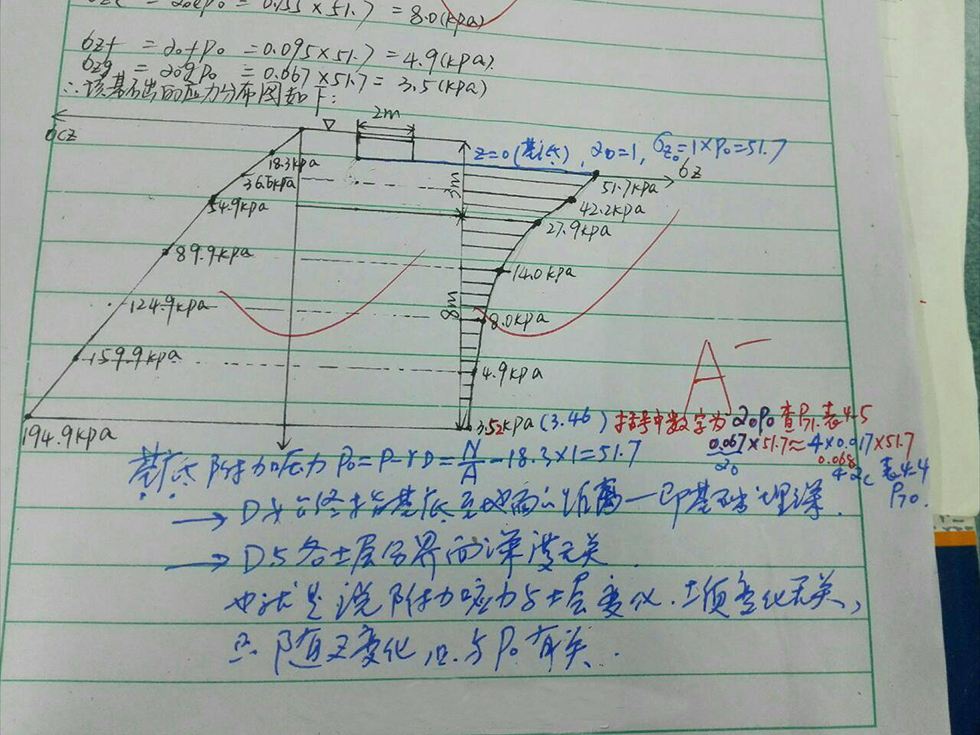 = 0.155 × 51.7 = 8.0(kpa)
σzf = α0f p0 = 0.095×51.7 = 4.9(kpa).
σzg = α0g p0 = 0.067×51.7 = 3.5(kpa)
∴该基础的应力分布图如下:
σcz
2m
▽
z=0(基底), α0=1, σz0=1×P0=51.7
σz
18.3kpa
36.6kpa
54.9kpa
89.9kpa
124.9kpa
159.9kpa
194.9kpa
3m
8m
51.7kpa
42.2kpa
27.9kpa
14.0kpa
8.0kpa
4.9kpa
3.52kpa (3.46) 括号中数字为α0P0 查P71.表4-5
A-
0.067×51.7≈4×0.017×51.7
α0 0.068 4αc 表4-4
P70.
基底附加应力 P0=P-γD=N/A-18.3×1=51.7
→ D始终指基底至地面的距离—即基础埋深.
→ D与各土层分界面深度无关.
也就是说附加应力与土层变化.土质变化无关,
只随z变化,但与P0有关.